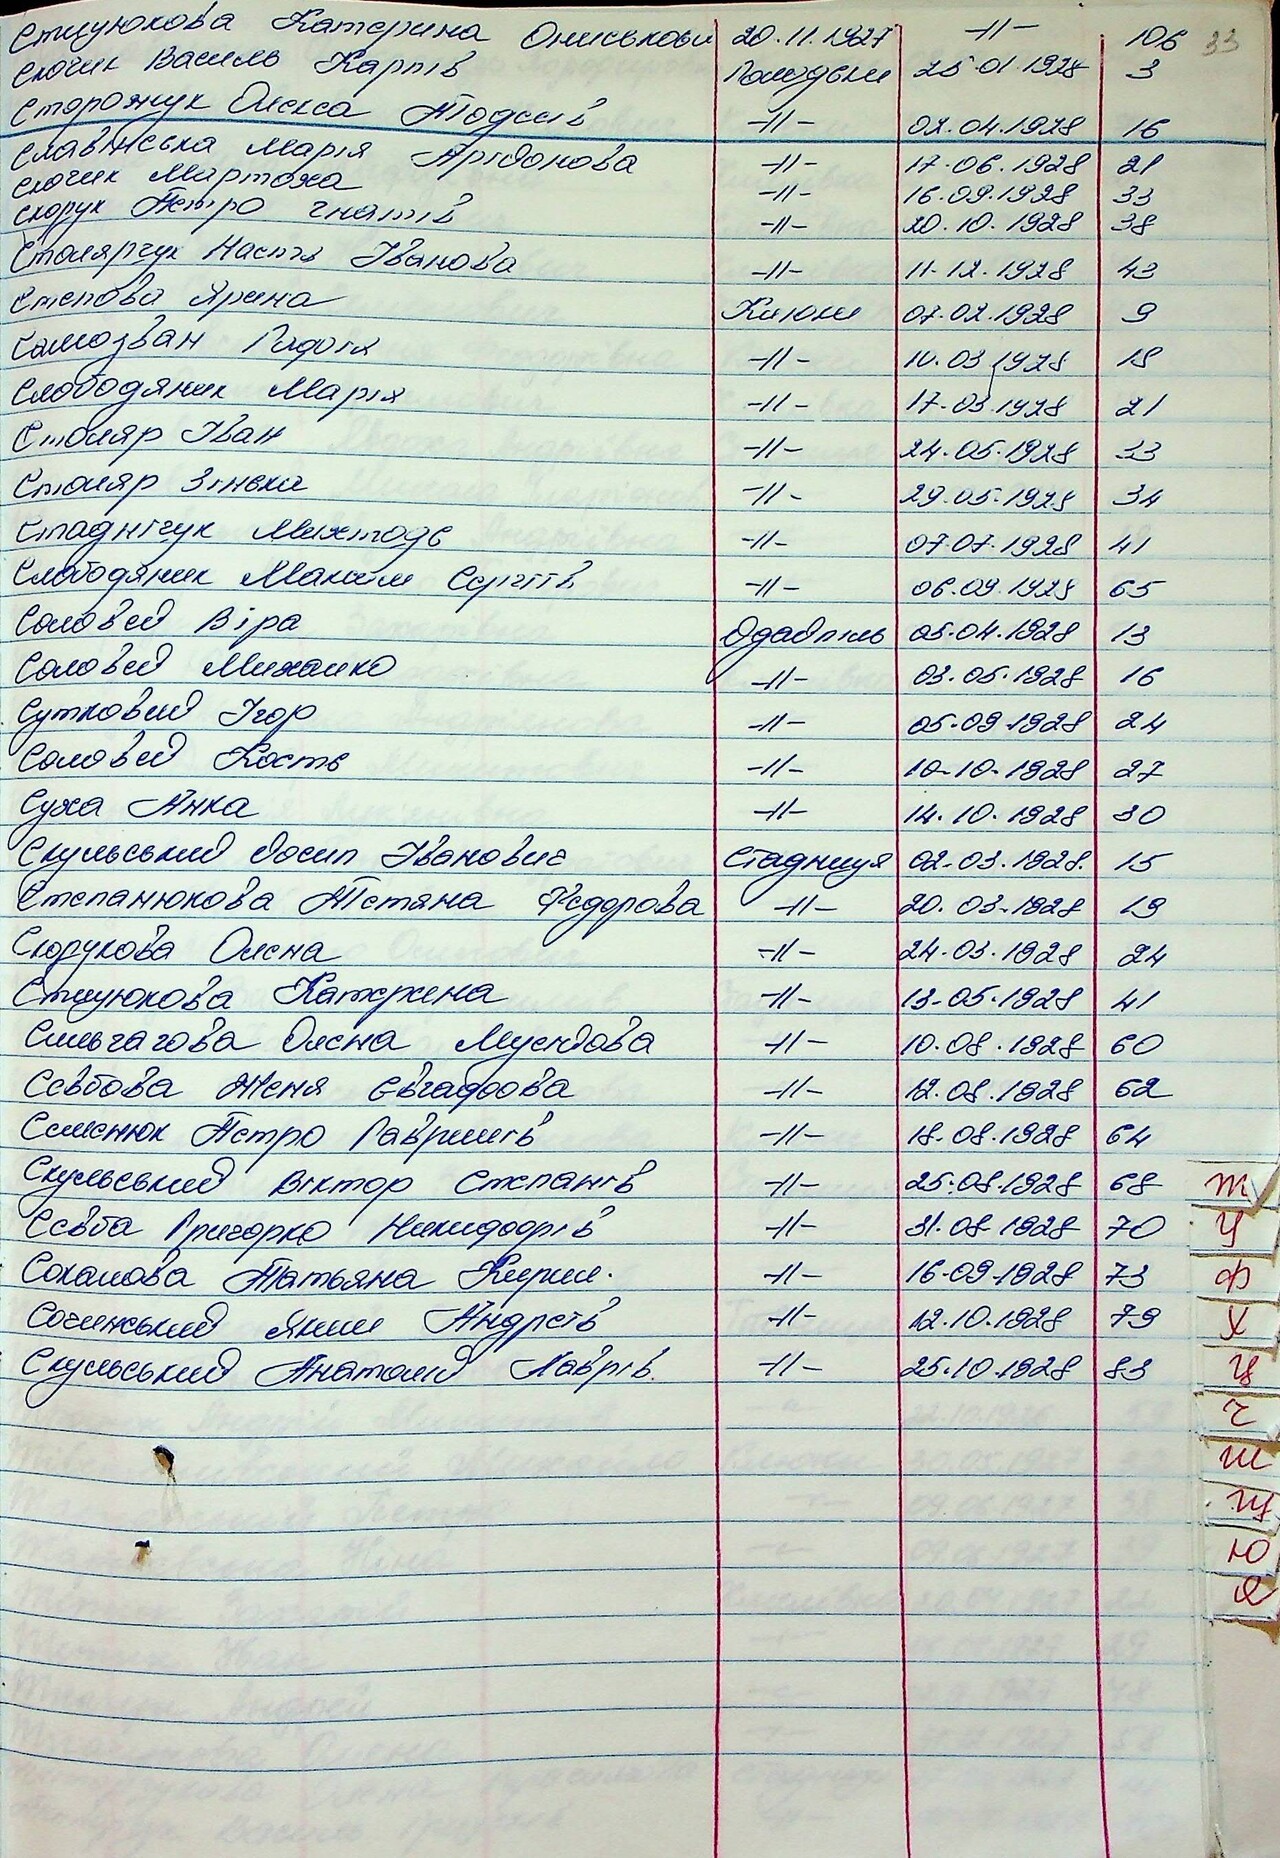 Стцюкова Катерина Ониськови 20.11.1927 -//- 106 33
Скочик Василь Карпів Голодьки 25.01.1928 3
Сторожук Олекса Тодсів -//- 02.04.1928 16
Славінська Марія Арідонова -//- 17.06.1928 21
Скочик Мартоха -//- 16.09.1928 33
Скорук Петро Гнатів -//- 20.10.1928 38
Столярчук Настя Іванова -//- 11.12.1928 43
Степова Ярина Клюки 07.02.1928 9
Самозван Гадотя -//- 10.03.1928 18
Слободяник Марія -//- 17.03.1928 21
Столяр Іван -//- 24.05.1928 33
Столяр Зінька -//- 29.05.1928 34
Стаднічук Михтодь -//- 07.07.1928 41
Слободяник Максим Сергіїв -//- 06.09.1928 65
Соловей Віра Одаєпіль 05.04.1928 13
Соловей Михайло -//- 03.05.1928 16
Сутковий Ігор -//- 05.09.1928 24
Соловей Кость -//- 10.10.1928 27
Суха Анна -//- 14.10.1928 30
Скульський Йосип Іванович Стадниця 02.03.1928. 15
Степанюкова Тетяна Федорова -//- 20.03.1928 19
Скорукова Олена -//- 24.03.1928 24
Стцюкова Катерина -//- 13.05.1928 41
Сильчагова Олена Мусійова -//- 10.08.1928 60
Сєвбова Женя Євгафова -//- 12.08.1928 62
Семенюк Петро Гаврилів -//- 18.08.1928 64
Скульський Віктор Степанів -//- 25.08.1928 68
Сєвба Григорко Никидорів -//- 31.08.1928 70
Сокалова Татьяна Кирил. -//- 16.09.1928 73
Сочинський Яким Андреїв -//- 12.10.1928 79
Скульський Анатолій Лаврів. -//- 25.10.1928 83
Т
У
Ф
Х
Ц
Ч
Ш
Щ
Ю
Я